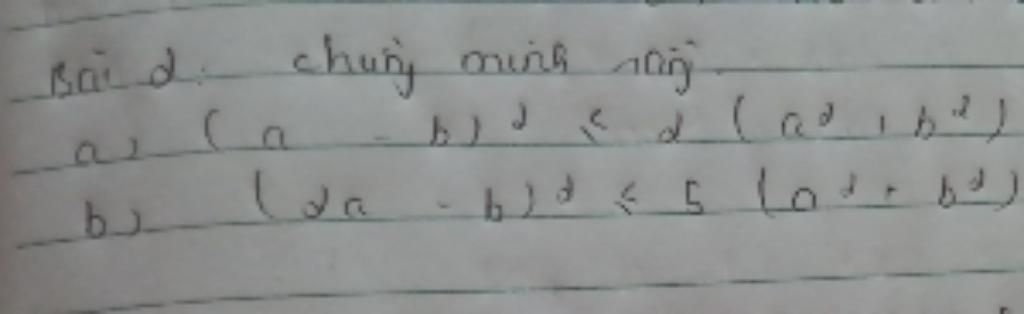 Bài 2: chứng minh rằng
a) (a - b)² ≤ 2 (a² + b²)
b) (2a - b)² ≤ 5 (a² + b²)